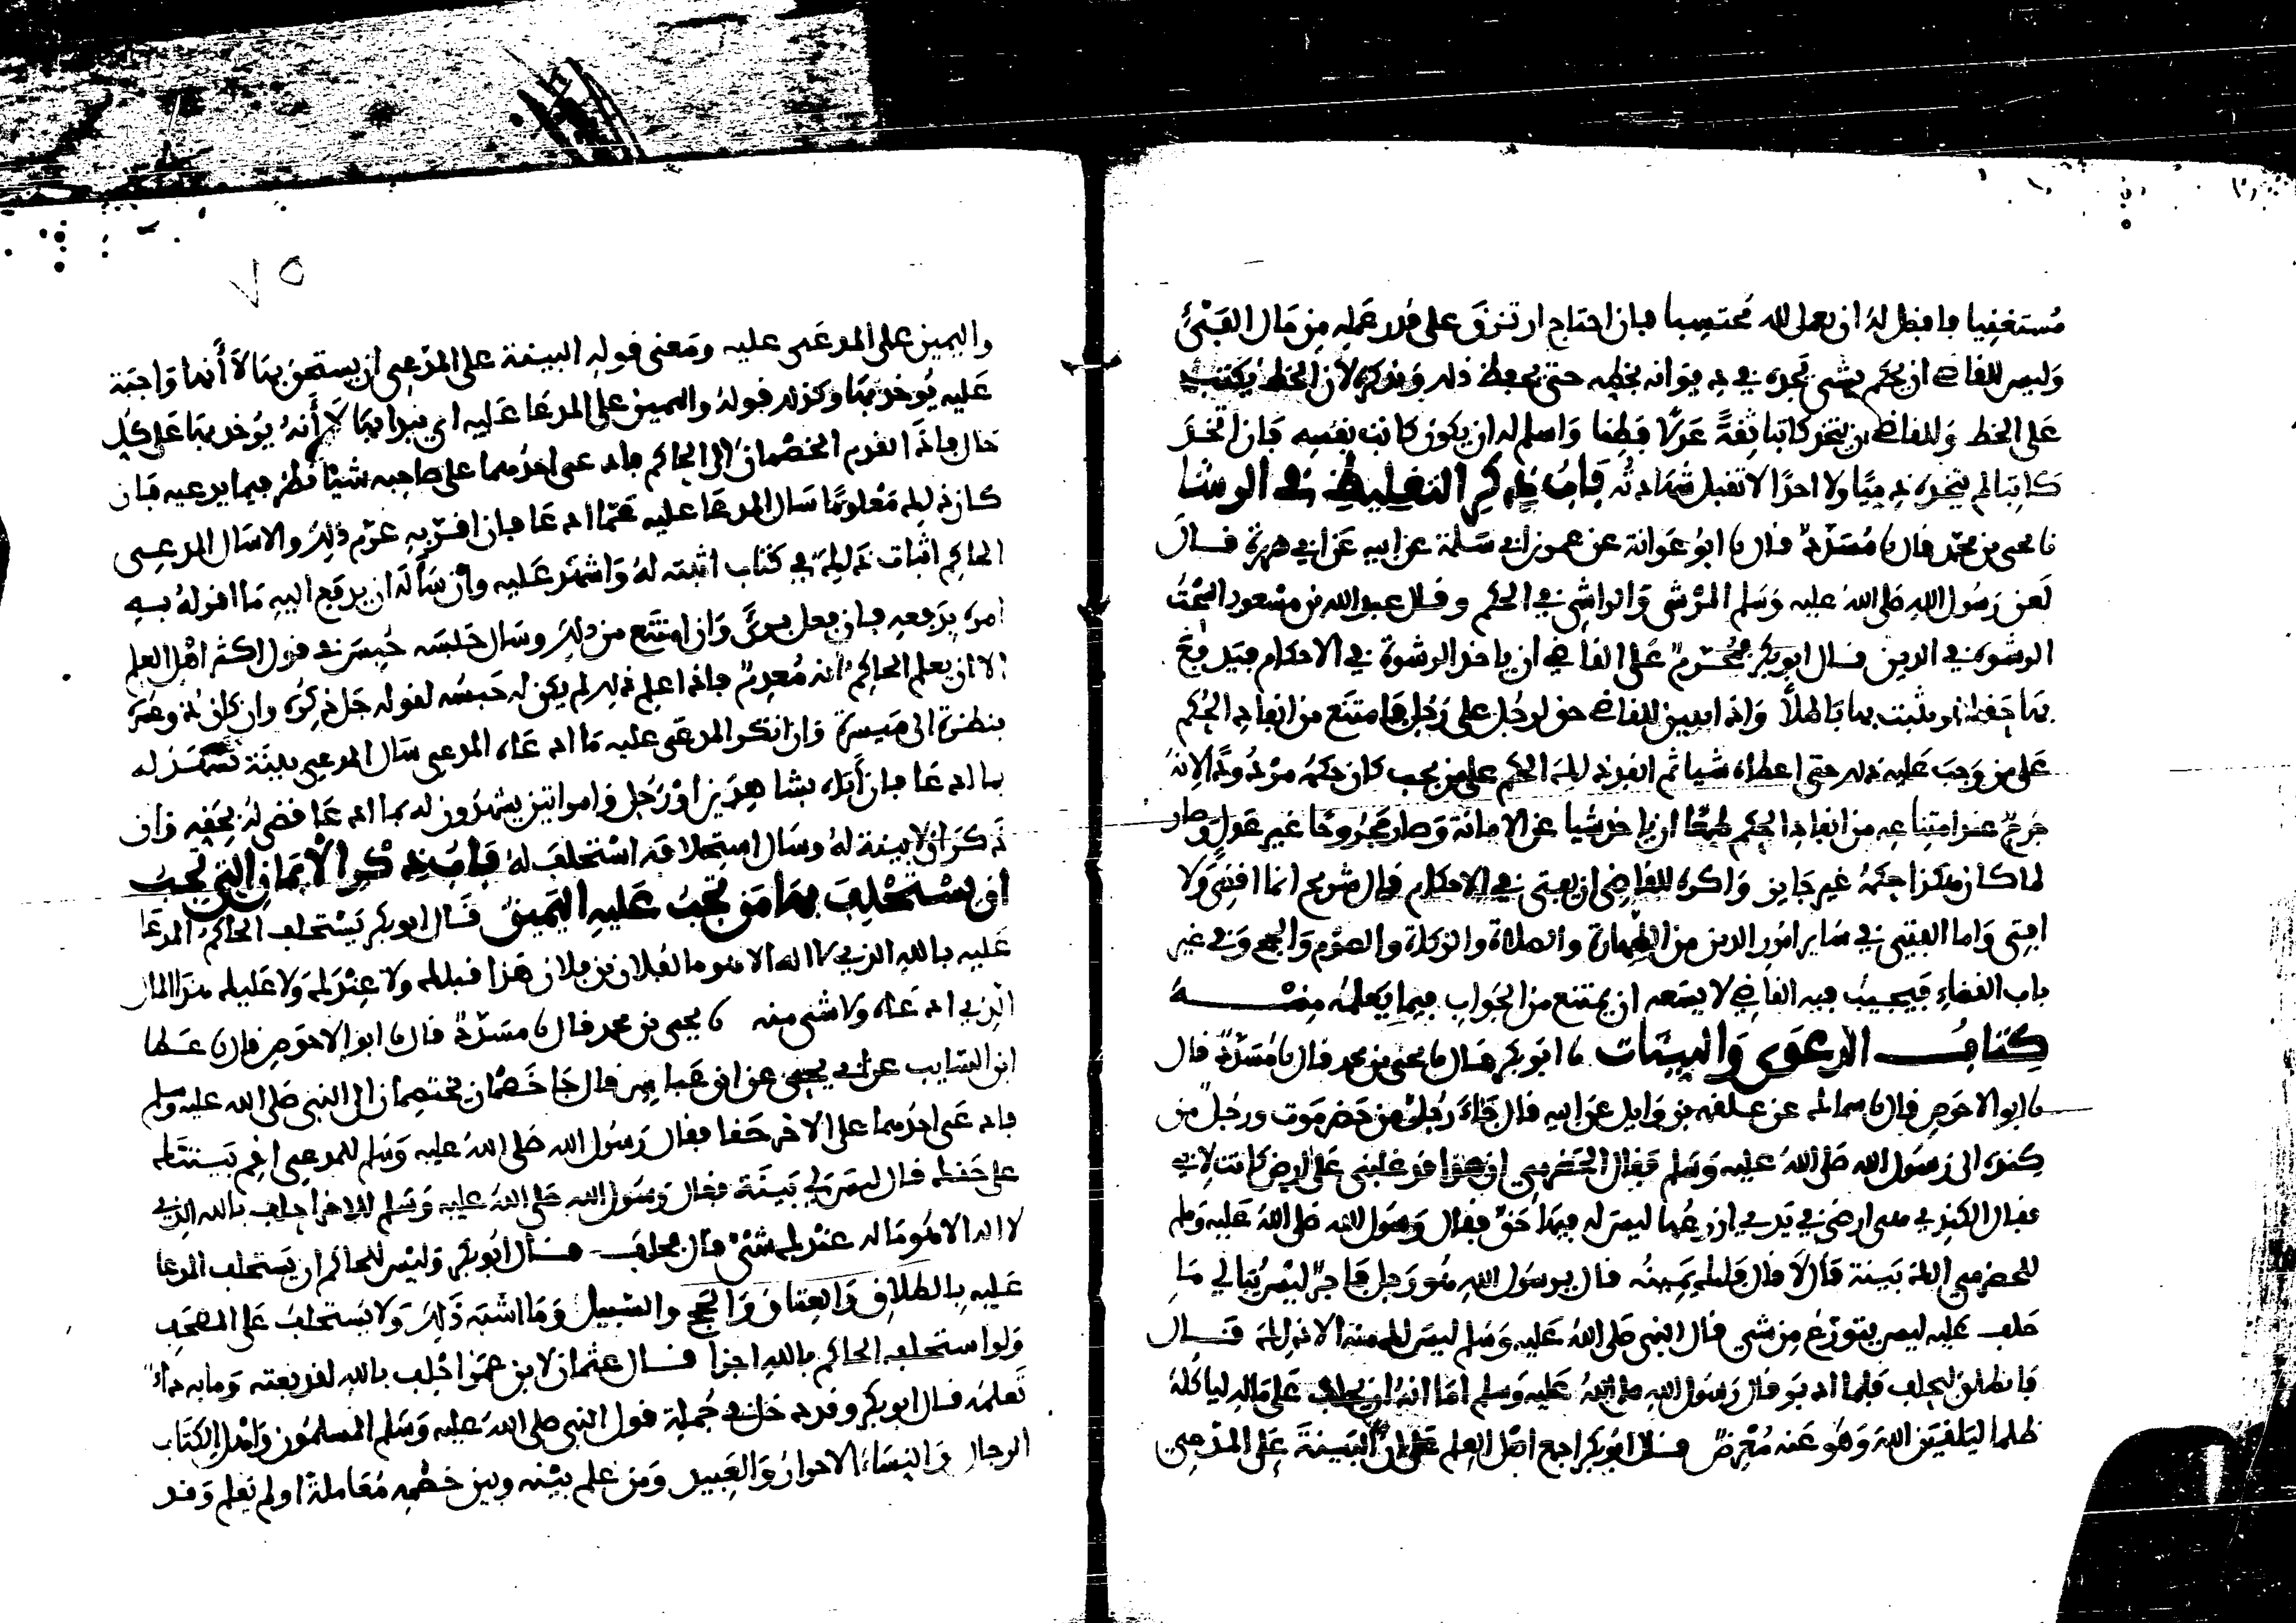 مستغنيا فافضل له ان يعمل لله محتسبا فان احتاج ارتزق على قدر عمله من مال الفيئ
وليس للقاضي ان يحكم بشي يجده في ديوانه بخطه حتى يحفظ ذلك ويذكره لان الخط يكتب
على الخط وللقاضي ان يتخذ كاتبا ثقة عدلا فطنا واسلم له ان يكون كاتب نفسه فان اتخذ
كاتبا لم يتخذه ذميا ولا احدا لا تقبل شهادته باب ذكر التغليظ في الرشا
نا يحيى بن محمد قال نا مسدد قال نا ابو عوانة عن عمر بن ابي سلمة عن ابيه عن ابي هريرة قال
لعن رسول الله صلى الله عليه وسلم المرشي والراشي في الحكم وقال عبد الله بن مسعود السحت
الرشوة في الدين قال ابو بكر محرم على القاضي ان ياخذ الرشوة في الاحكام فيدفع
بها حقا او يثبت بها باطلا واذا تبين للقاضي حق لرجل على رجل فامتنع من انفاذ الحكم
على من وجب عليه ذلك حتى اعطاه شيا ثم انفذ ذلك الحكم على من يجب كان حكمه مردودا لانه
جرح عند امتناعه من انفاذ الحكم طمعا ان ياخذ شيا عن الامانة وصار مجروحا غير عدل وصار
لما كان هكذا حكمه غير جايز واكره للقاضي ان يفتي في الاحكام قال شريح انما اقضي ولا
افتي واما الفتيى في ساير امور الدين من الطهارة والصلاة والزكاة والصوم والحج وفي غير
باب القضاء فيجيب فيه القاضي لا يسعه ان يمتنع من الجواب فيما يعلمه منه
كتاب الدعوى والبينات نا ابو بكر قال نا يحيى بن محمد قال نا مسدد قال
نا ابو الاحوص قال نا سماك عن علقمة بن وايل عن ابيه قال جاء رجل من حضرموت ورجل من
كندة الى رسول الله صلى الله عليه وسلم فقال الحضرمي ان هذا قد غلبني على ارض كانت لابي
فقال الكندي هي ارضي في يدي ازرعها ليس له فيها حق فقال رسول الله صلى الله عليه وسلم
للحضرمي الك بينة قال لا قال فلك يمينه قال يرسول الله هو رجل فاجر ليس يبالي ما
حلف عليه ليس يتورع من شي قال النبي صلى الله عليه وسلم ليس لك منه الا ذلك قال
فانطلق ليحلف فلما ادبر قال رسول الله صلى الله عليه وسلم اما انه ان يحلف على ماله لياكله
ظلما ليلقين الله وهو عنه معرض قال ابو بكر اجمع اهل العلم على ان البينة على المدعي
٧٥
واليمين على المدعى عليه ومعنى قوله البينة على المدعي ان يستحق بها لا أنها واجبة
عليه يوخذ بها وكذلك قوله واليمين على المدعا عليه اي يبرا بها لا أنه يوخذ بها على كل
حال فاذا تقدم الخصمان الى الحاكم فادعى احدهما على صاحبه شيئا نظر فيما يدعيه فان
كان ذلك معلوما سال المدعا عليه عما ادعا فان اقر به عرم ذلك والا سال المدعي
الحاكم اثبات ذلك في كتاب اثبته له واشهد عليه وان سأله ان يدفع اليه ما اقر له به
امره بدفعه فان فعل برئ وان امتنع من ذلك وسال حبسه حبس في قول اكثر اهل العلم
الا ان يعلم الحاكم انه معدم فاذا علم ذلك لم يكن له حبسه لقوله جل ذكره وان كان ذو عسرة
فنظرة الى ميسرة وان انكر المدعى عليه ما ادعاه المدعي سال المدعي بينة تشهد له
بما ادعا فان أتاه بشاهدين او رجل وامراتين يشهدون له بما ادعا قضى له بحقه وان
ذكر ان لا بينة له وسال استحلافه استحلف له باب ذكر الأيمان التي يجب
ان يستحلف بها من تجب عليه اليمين قال ابو بكر يستحلف الحاكم المدعا
عليه بالله الذي لا اله الا هو ما لفلان بن فلان هذا قبلك ولا عندك ولا عليك هذا المال
الذي ادعاه ولا شي منه نا يحيى بن محمد قال نا مسدد قال نا ابو الاحوص قال نا عطا
ابن السايب عن ابي يحيى عن ابن عباس قال جا خصمان يختصمان الى النبي صلى الله عليه وسلم
فادعى احدهما على الاخر حقا فقال رسول الله صلى الله عليه وسلم للمدعي اقم بينتك
على حقك قال ليس لي بينة فقال رسول الله صلى الله عليه وسلم للاخر احلف بالله الذي
لا اله الا هو ما له عندك شئ قال فحلف قال ابو بكر وليس للحاكم ان يستحلف المدعا
عليه بالطلاق والعتاق والحج والسبيل وما اشبه ذلك ولا يستحلف على المصحف
ولو استحلف الحاكم بالله اجزا قال عثمان لابن عمر احلف بالله لقد بعته وما به داء
تعلمه قال ابو بكر وقد دخل في جملة قول النبي صلى الله عليه وسلم المسلمون واهل الكتاب
الرجال والنساء الاحرار والعبيد ومن علم بينه وبين خصمه معاملة او لم تعلم وقد